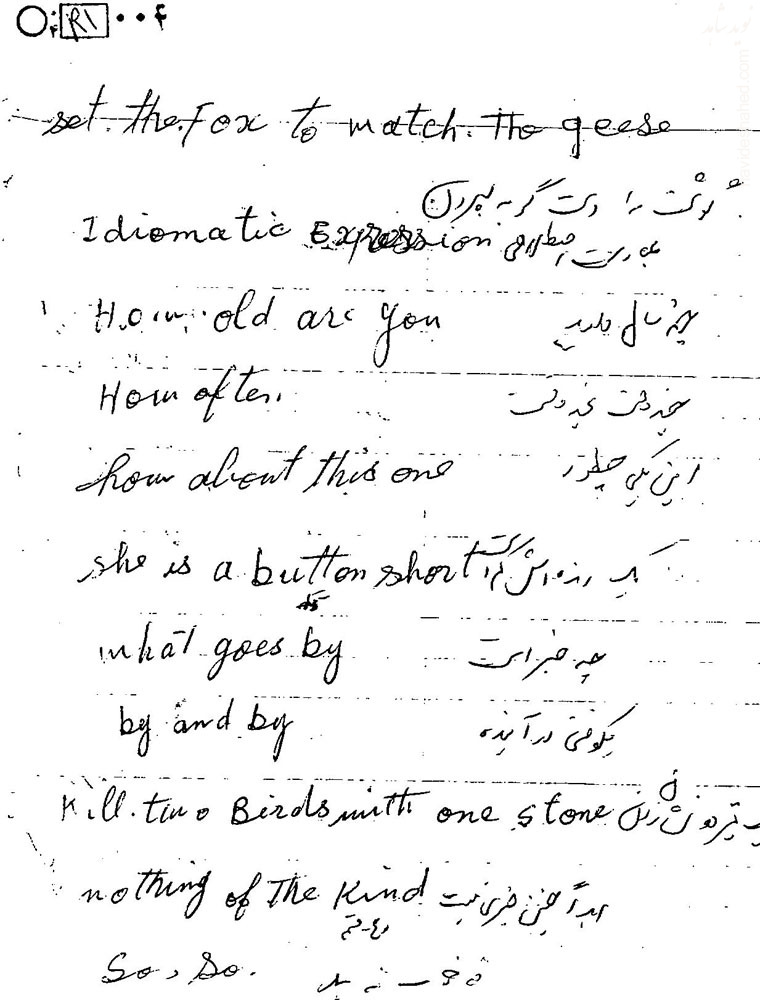 set the Fox to watch the geese
گوشت را دست گربه سپردن
Idiomatic Expression بصورت اصطلاحی
How old are you چند سال دارید
How often چند وقت چند وقت
how about this one این یکی چطور
she is a button short یک
what goes by چه خبر است
by and by یکوقتی در آینده
Kill two Birds with one stone یک تیر دو نشان زدن
nothing of The Kind ابداً چنین چیزی نیست
So, So. نه خوب نه بد